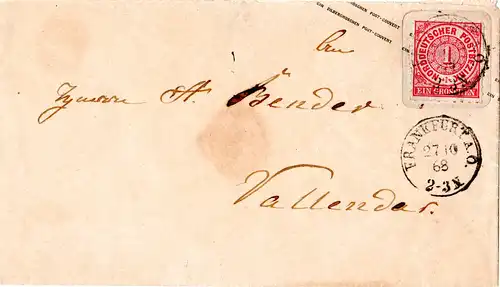 EIN SILBERGROSCHEN POST-COUVERT
NORDDEUTSCHER POSTBEZIRK
1
EIN GROSCHEN
An
A. Bender
Vallendar.
FRANKFURT A.O.
27 10
68
2-3N